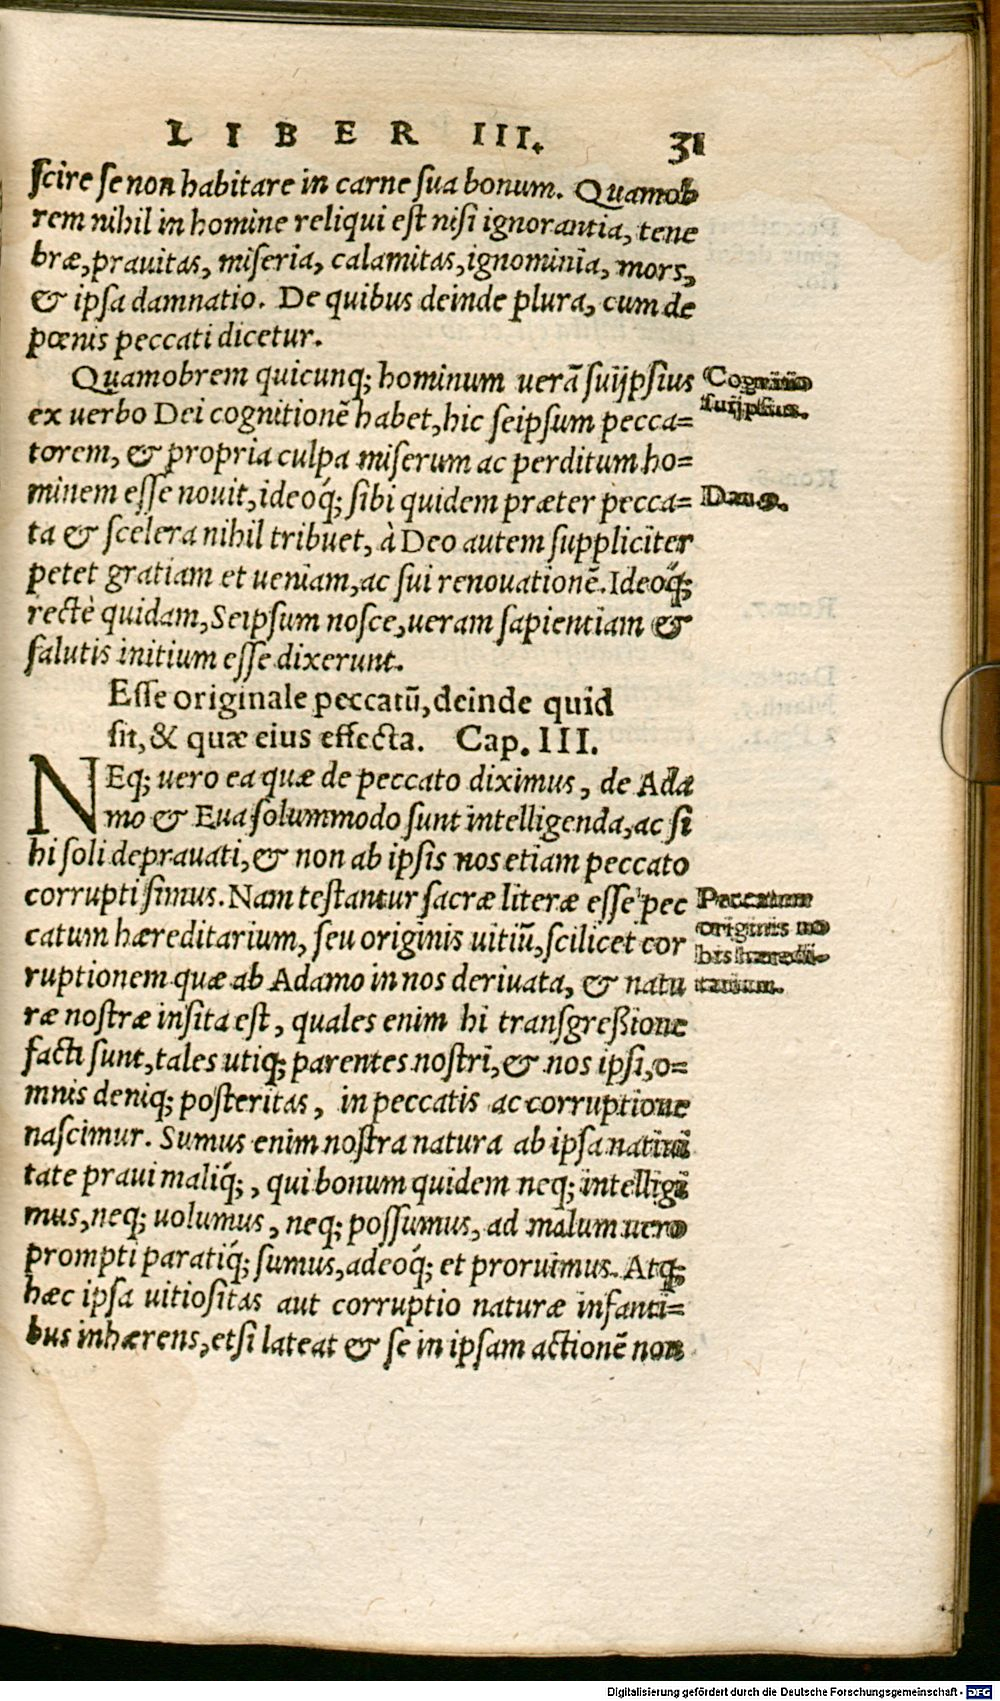 LIBER III. 31
scire se non habitare in carne sua bonum. Quamob
rem nihil in homine reliqui est nisi ignorantia, tene
bræ, prauitas, miseria, calamitas, ignominia, mors,
& ipsa damnatio. De quibus deinde plura, cum de
pœnis peccati dicetur.
Quamobrem quicunq; hominum uerā suijpsius
Cognitio
suijpsius.
ex uerbo Dei cognitionē habet, hic seipsum pecca=
torem, & propria culpa miserum ac perditum ho=
minem esse nouit, ideoq́; sibi quidem præter pecca=
Dan. 9.
ta & scelera nihil tribuet, à Deo autem suppliciter
petet gratiam et ueniam, ac sui renouationē. Ideoq́;
rectè quidam, Seipsum nosce, ueram sapientiam &
salutis initium esse dixerunt.
Esse originale peccatū, deinde quid
sit, & quæ eius effecta. Cap. III.
NEq; uero ea quæ de peccato diximus, de Ada
mo & Eua solummodo sunt intelligenda, ac si
hi soli deprauati, & non ab ipsis nos etiam peccato
corrupti simus. Nam testantur sacræ literæ esse pec
Peccatum
originis no
bis hæredi-
tarium.
catum hæreditarium, seu originis uitiū, scilicet cor
ruptionem quæ ab Adamo in nos deriuata, & natu
ræ nostræ insita est, quales enim hi transgreßione
facti sunt, tales utiq; parentes nostri, & nos ipsi, o=
mnis deniq; posteritas, in peccatis ac corruptione
nascimur. Sumus enim nostra natura ab ipsa natiui
tate praui maliq́;, qui bonum quidem neq; intelligi
mus, neq; uolumus, neq; possumus, ad malum uero
prompti paratiq́; sumus, adeoq́; et proruimus. Atq;
hæc ipsa uitiositas aut corruptio naturæ infanti=
bus inhærens, etsi lateat & se in ipsam actionē non
Digitalisierung gefördert durch die Deutsche Forschungsgemeinschaft - DFG